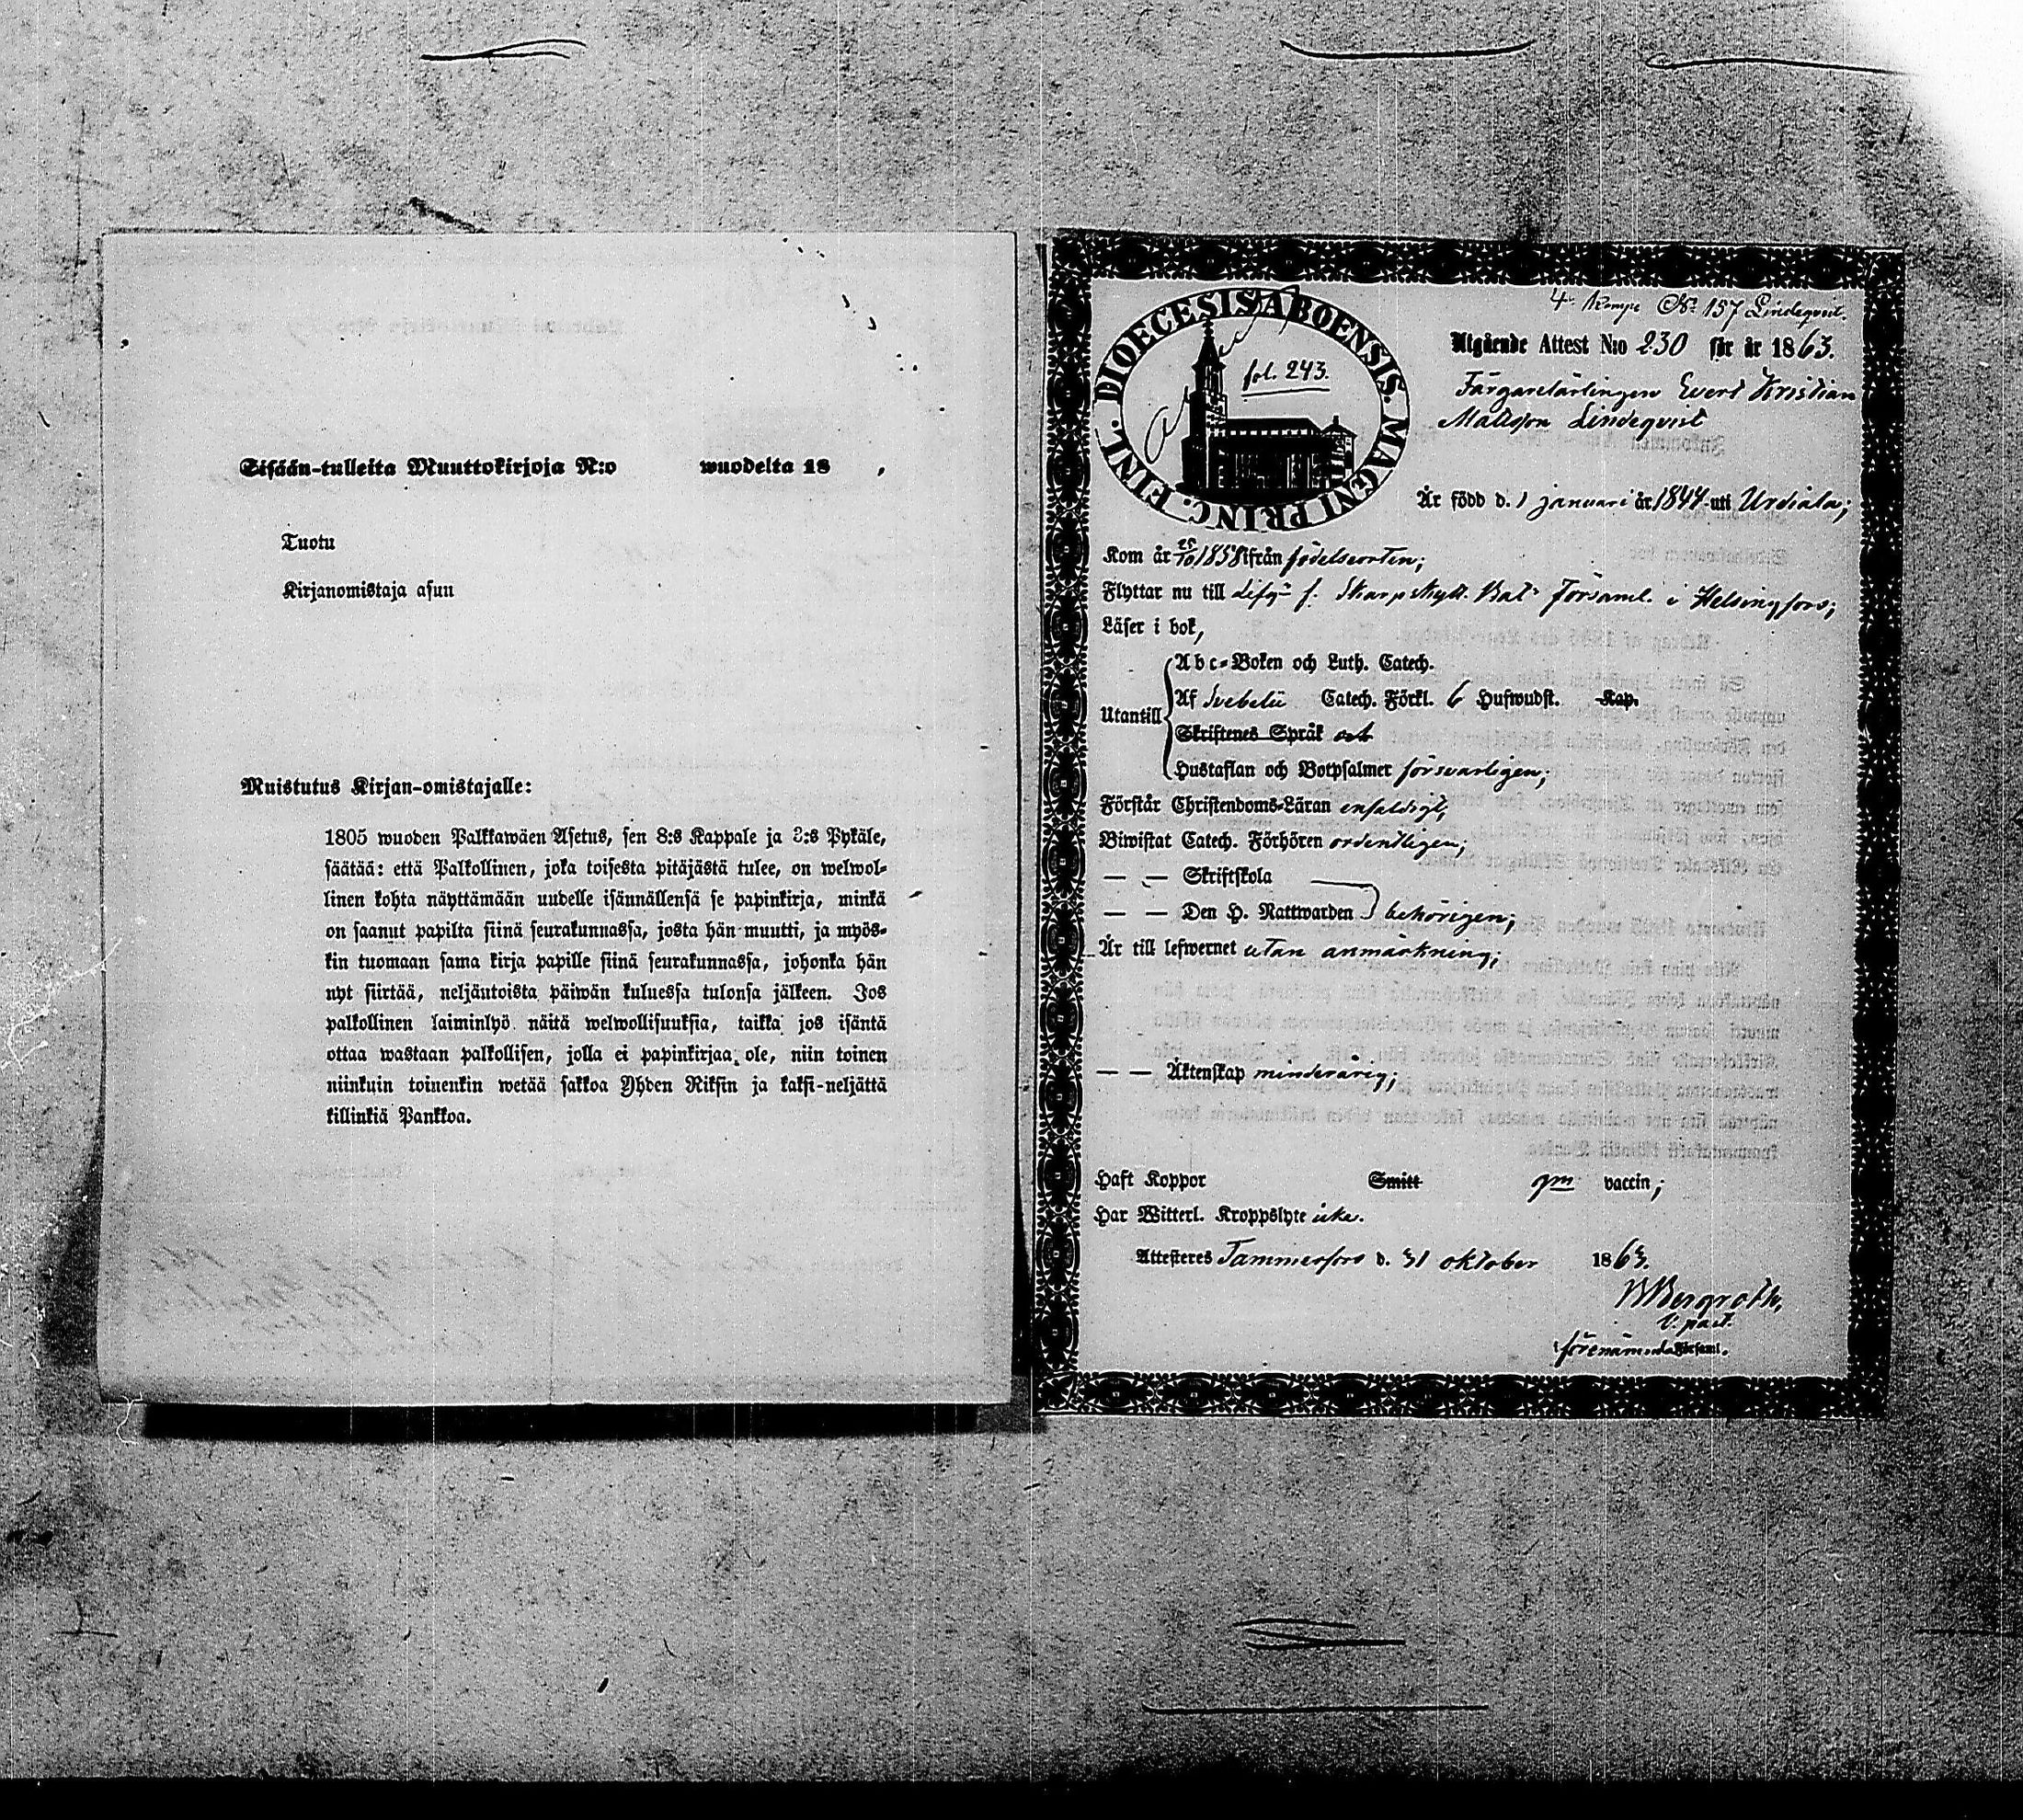 Sisään-tulleita Muuttokirjoja N:o wuodelta 18 ,
Tuotu
Kirjanomistaja asuu
Muistutus Kirjan-omistajalle:
1805 wuoden Palkkawäen Asetus, sen 8:s Kappale ja 3:s Pykäle,
säätää: että Palkollinen, joka toisesta pitäjästä tulee, on welwol-
linen kohta näyttämään uudelle isännällensä se papinkirja, minkä
on saanut papilta siinä seurakunnassa, josta hän muutti, ja myös-
kin tuomaan sama kirja papille siinä seurakunnassa, johonka hän
nyt siirtää, neljäntoista päiwän kuluessa tulonsa jälkeen. Jos
palkollinen laiminlyö näitä welwollisuuksia, taikka jos isäntä
ottaa wastaan palkollisen, jolla ei papinkirjaa ole, niin toinen
niinkuin toinenkin wetää sakkoa Yhden Riksin ja kaksi-neljättä
killinkiä Pankkoa.
4 Komp. No 157 Lindeqvist.
DIOECESIS ABOENSIS. MAGNI PRINC. FINL.
fol. 243.
Utgående Attest N:o 230 för år 1863.
Färgarelärlingen Evert Kristian
Mattsson Lindeqvist
Är född d. 1 januari år 1844 uti Urdiala;
Kom år 25/10 1858 ifrån födelseorten;
Flyttar nu till Lifg. f. Skarpskytt. Bat. Församl. i Helsingfors;
Läser i bok,
Utantill
Abc-Boken och Luth. Catech.
Af Svebelii Catech. Förkl. 6 Hufwudst. Kap.
Skriftenes Språk och
Hustaflan och Botpsalmer försvarligen;
Förstår Christendoms-Läran enfaldigt,
Biwistat Catech. Förhören ordentligen;
— — Skriftskola
— — Den H. Nattwarden behörigen;
Är till lefwernet utan anmärkning;
— — Äktenskap minderårig;
Haft Koppor Smitt gm vaccin;
Har Witterl. Kroppslyte icke.
Attesteras Tammerfors d. 31 oktober 1863.
Bergroth,
v. past.
i förenämnda Församl.